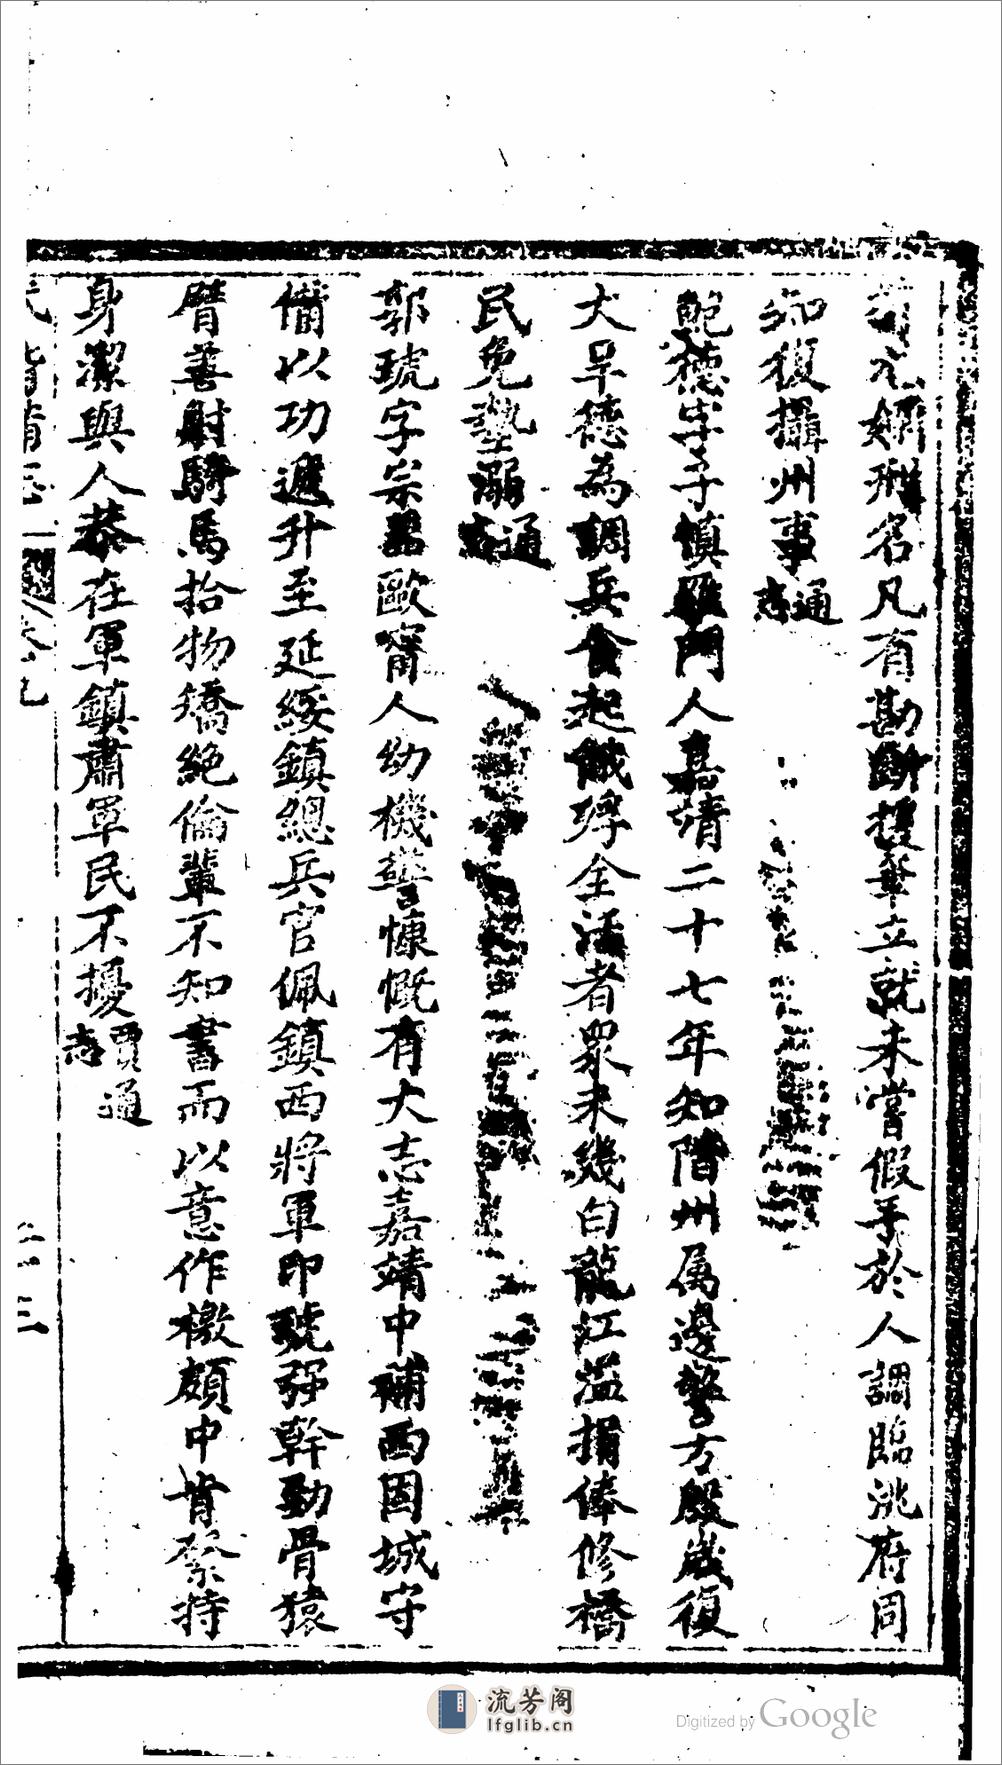 尤嫺刑名凡有勘斷援筆立就未嘗假手於人調臨洮府同
知復攝州事通志
鮑德字子慎雁門人嘉靖二十七年知階州屬邊警方殷歲復
大旱德為調兵食起餓殍全活者眾未幾白龍江溢捐俸修橋
民免墊溺通志
郭琥字宗器歐寧人幼機警慷慨有大志嘉靖中補西固城守
備以功遞升至延綏鎮總兵官佩鎮西將軍印號强幹勁骨猿
臂善射騎馬拾物矯絶倫輩不知書而以意作檄頗中肯綮持
身潔與人恭在軍鎮肅軍民不擾賈通志
卷九
流芳阁
lfglib.cn
Digitized by Google